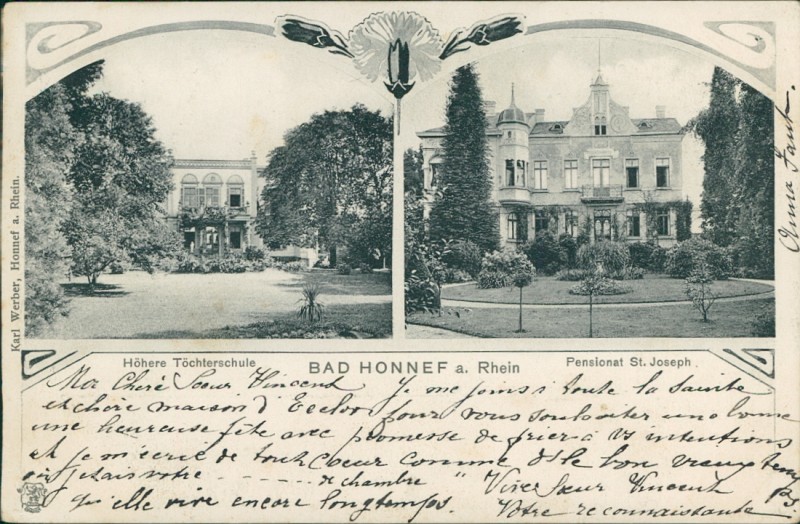 Karl Werber, Honnef a. Rhein.
Höhere Töchterschule
BAD HONNEF a. Rhein
Pensionat St. Joseph.
Ma Cherè Sœur Vincent Je me joins à toute la sainte
et chère maison d'Eecloo pour vous souhaiter une bonne
une heureuse fête avec promesse de prier à vs intentions
et je m'écrie de tout Cœur comme ds le bon vieux temps
où j'étais votre - - - - - - - de chambre " Vive Sœur Vincent
qu'elle vive encore longtemps. Votre reconnaissante
P.S.
Anna